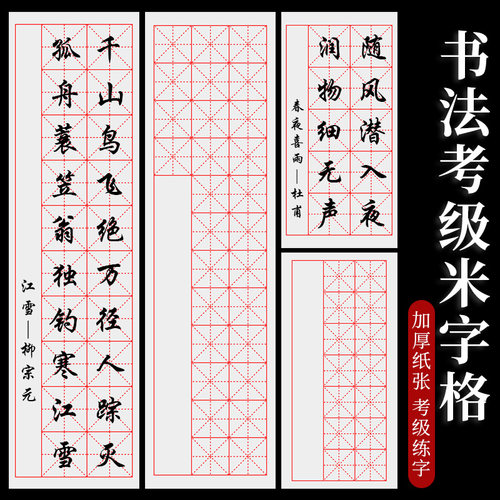 千山鸟飞绝万径人踪灭
孤舟蓑笠翁独钓寒江雪
江雪—柳宗元
随风潜入夜
润物细无声
春夜喜雨—杜甫
书法考级米字格
加厚纸张 考级练字